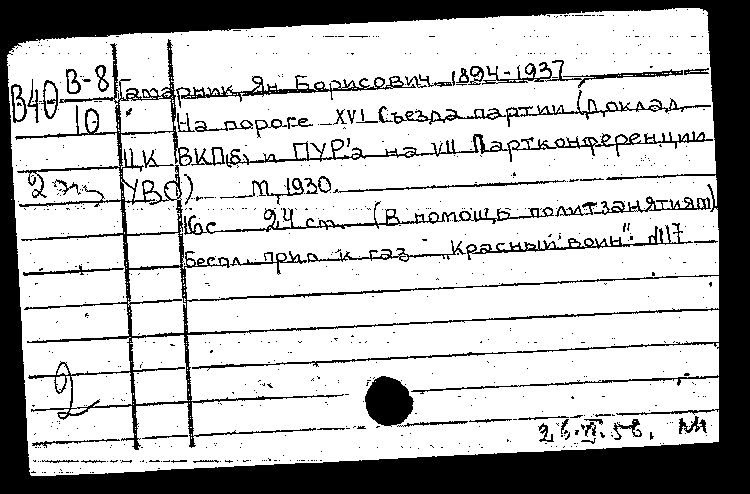 В40 В-8/10
Гамарник, Ян Борисович 1894-1937
На пороге XVI Съезда партии (Доклад
ЦК ВКП(б) и ПУР'а на VII Партконференции
2 экз УВО). М, 1930.
24 cm. (В помощь политзанятиям)
Беспл. прил к газ "Красный воин". №117
2
26.VI.58.